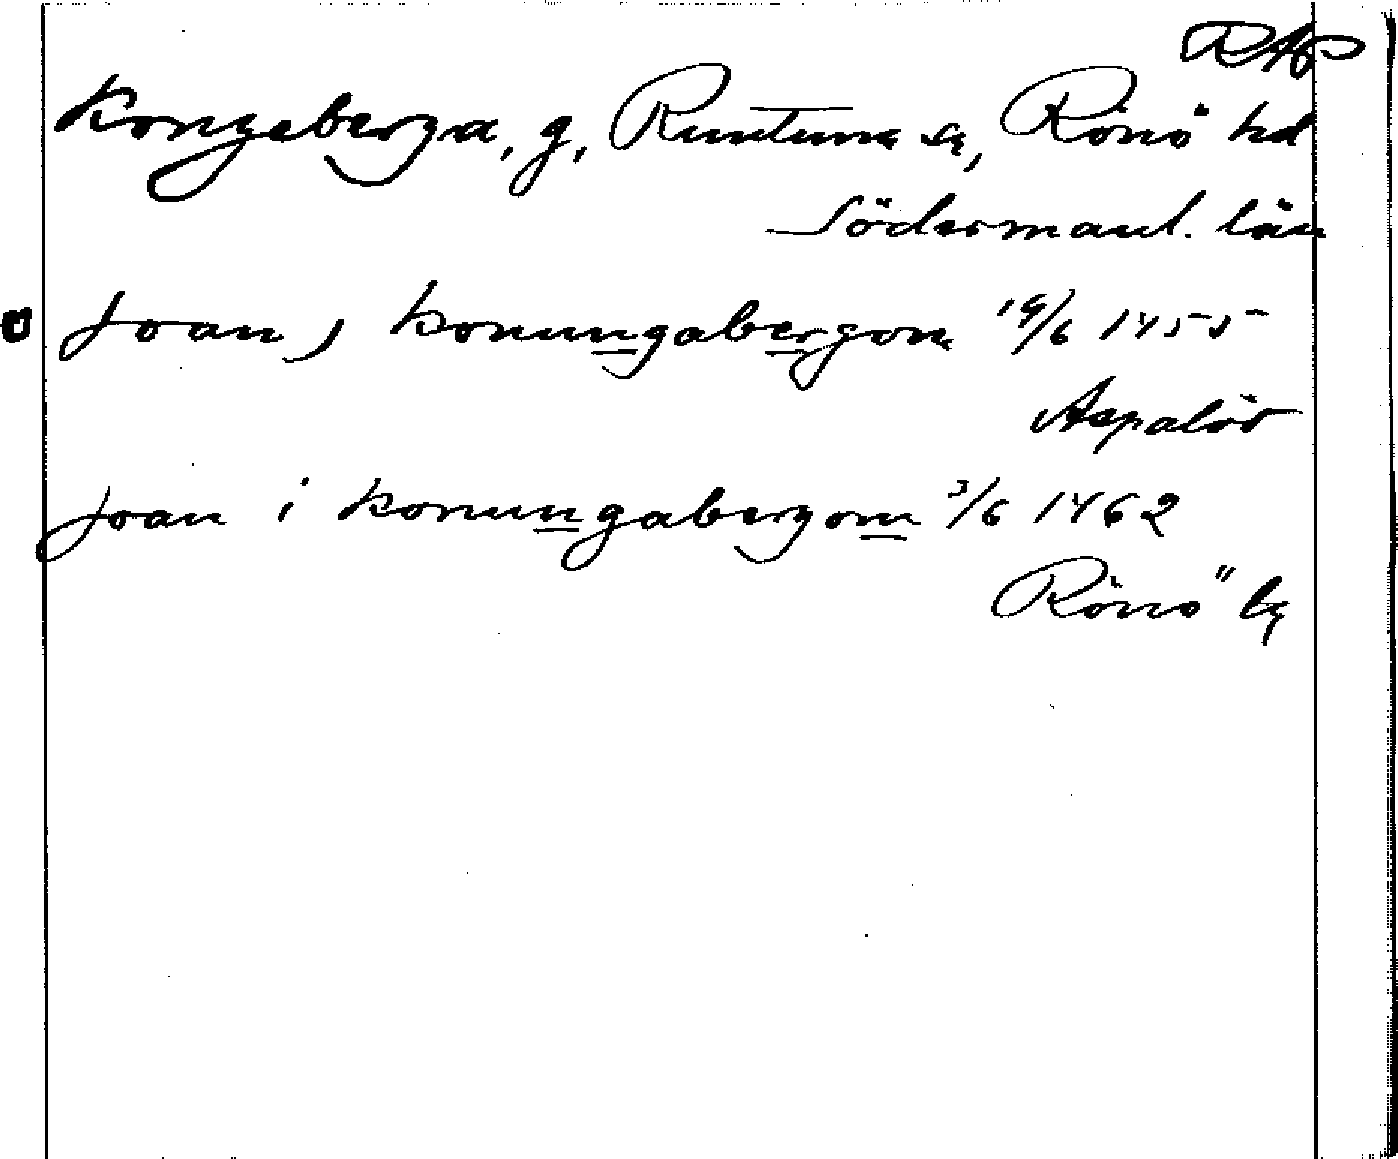 RAP
Kongeberga, g, Runtuna sn, Rönö hd
Södermanl. län
Joan j konungabergom 19/6 1455
Aspalöt
Joan i konungabergom 3/6 1462
Rönö"